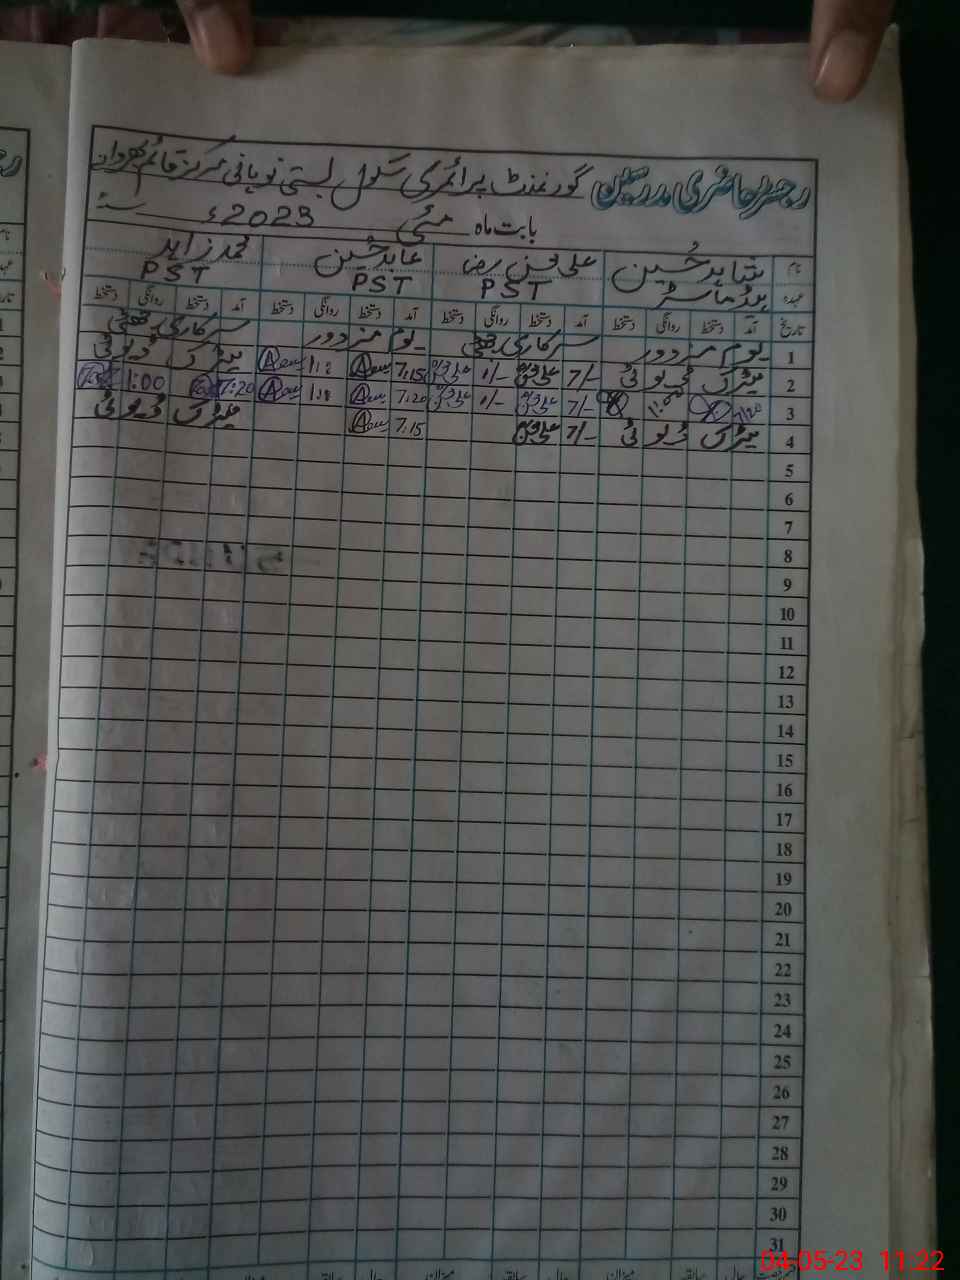 رجسٹر حاضری مدرسین گورنمنٹ پرائمری سکول بستی نوبانی مرکز قائم بھروانہ
بابت ماہ مئی 2023ء سنہ
نام شاہد حسین علی حسن رضا عابد حسین محمد زاہد
عہدہ ہیڈ ماسٹر PST PST PST
تاریخ آمد دستخط روانگی دستخط آمد دستخط روانگی دستخط آمد دستخط روانگی دستخط آمد دستخط روانگی دستخط
1 یوم مزدور سرکاری چھٹی یوم مزدور سرکاری چھٹی
2 میٹرک ڈیوٹی 7/- 1/- 7:15 1:12 میٹرک ڈیوٹی
3 7:20 1:00 7/- 1/- 7:20 1:18 7:20 1:00
4 میٹرک ڈیوٹی 7/- 7:15 میٹرک ڈیوٹی
5
6
7
8
9
10
11
12
13
14
15
16
17
18
19
20
21
22
23
24
25
26
27
28
29
30
31
04-05-23 11:22